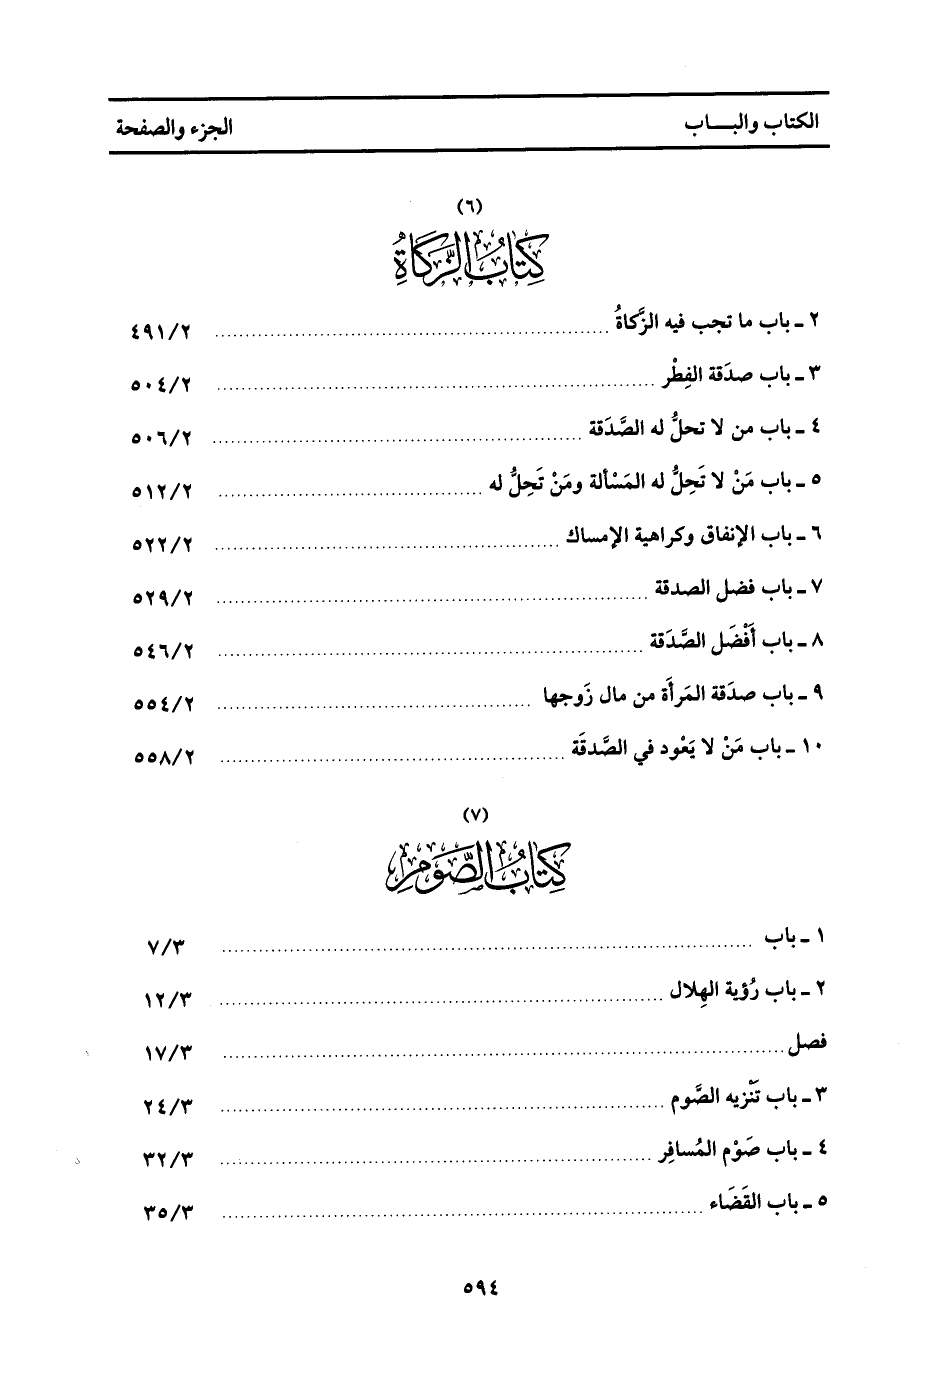 الكتاب والبـــاب الجزء والصفحة
(٦)
كِتَابُ الزَّكَاةِ
٢ ـ باب ما تجب فيه الزَّكاةُ ٤٩١/٢
٣ ـ باب صدَقة الفِطْر ٥٠٤/٢
٤ ـ باب من لا تحلُّ له الصَّدَقة ٥٠٦/٢
٥ ـ باب مَنْ لا تَحِلُّ له المَسْألة ومَنْ تَحِلُّ له ٥١٢/٢
٦ ـ باب الإنفاق وكراهية الإمساك ٥٢٢/٢
٧ ـ باب فضل الصدقة ٥٢٩/٢
٨ ـ باب أَفْضَل الصَّدَقة ٥٤٦/٢
٩ ـ باب صدَقة المَرأَة من مال زَوجها ٥٥٤/٢
١٠ ـ باب مَنْ لا يَعْود في الصَّدقَة ٥٥٨/٢
(٧)
كِتَابُ الصَّوْمِ
١ ـ باب ٧/٣
٢ ـ باب رُؤية الهِلال ١٢/٣
فصل ١٧/٣
٣ ـ باب تَنْزيه الصَّوم ٢٤/٣
٤ ـ باب صَوْم المُسافِر ٣٢/٣
٥ ـ باب القَضَاء ٣٥/٣
٥٩٤